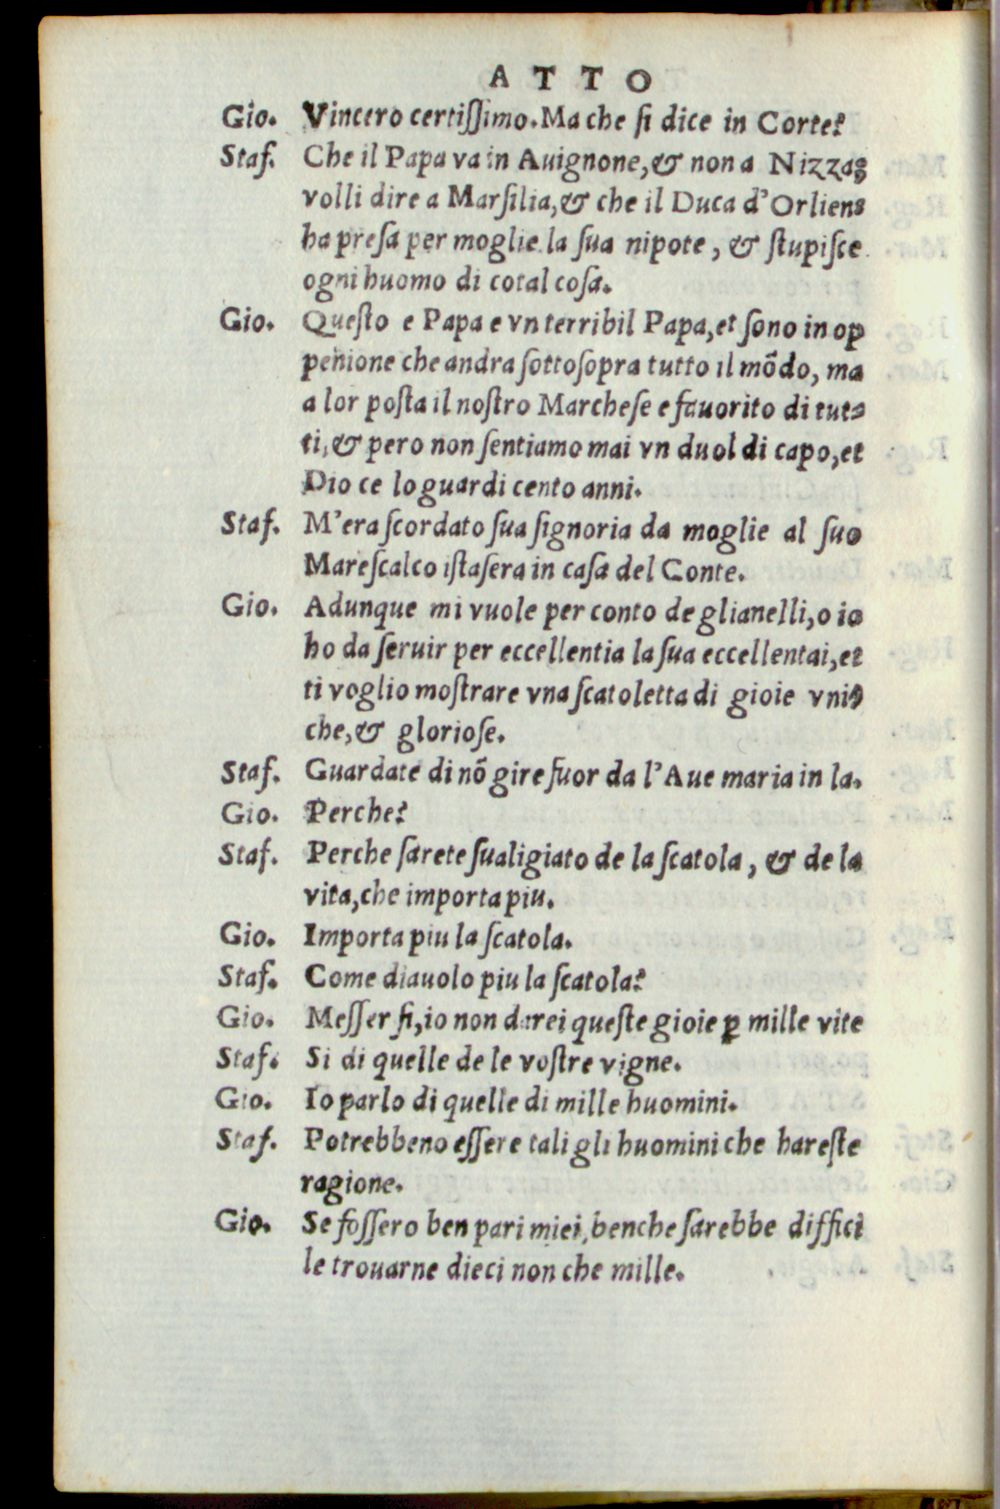 ATTO
Gio. Vincero certissimo. Ma che si dice in Corte?
Staf. Che il Papa va in Auignone, & non a Nizza;
volli dire a Marsilia, & che il Duca d'Orliens
ha presa per moglie la sua nipote, & stupisce
ogni huomo di cotal cosa.
Gio. Questo e Papa e vn terribil Papa, et sono in op
penione che andra sottosopra tutto il mõdo, ma
a lor posta il nostro Marchese e fauorito di tut-
ti, & pero non sentiamo mai vn duol di capo, et
Dio ce lo guardi cento anni.
Staf. M'era scordato sua signoria da moglie al suo
Marescalco istasera in casa del Conte.
Gio. Adunque mi vuole per conto de gli anelli, o io
ho da seruir per eccellentia la sua eccellentai, et
ti voglio mostrare vna scatoletta di gioie vni-
che, & gloriose.
Staf. Guardate di nõ gire fuor da l'Aue maria in la.
Gio. Perche?
Staf. Perche sarete sualigiato de la scatola, & de la
vita, che importa piu.
Gio. Importa piu la scatola.
Staf. Come diauolo piu la scatola?
Gio. Messer si, io non darei queste gioie ꝑ mille vite
Staf. Si di quelle de le vostre vigne.
Gio. Io parlo di quelle di mille huomini.
Staf. Potrebbeno essere tali gli huomini che hareste
ragione.
Gio. Se fossero ben pari miei, benche sarebbe diffici
le trouarne dieci non che mille.